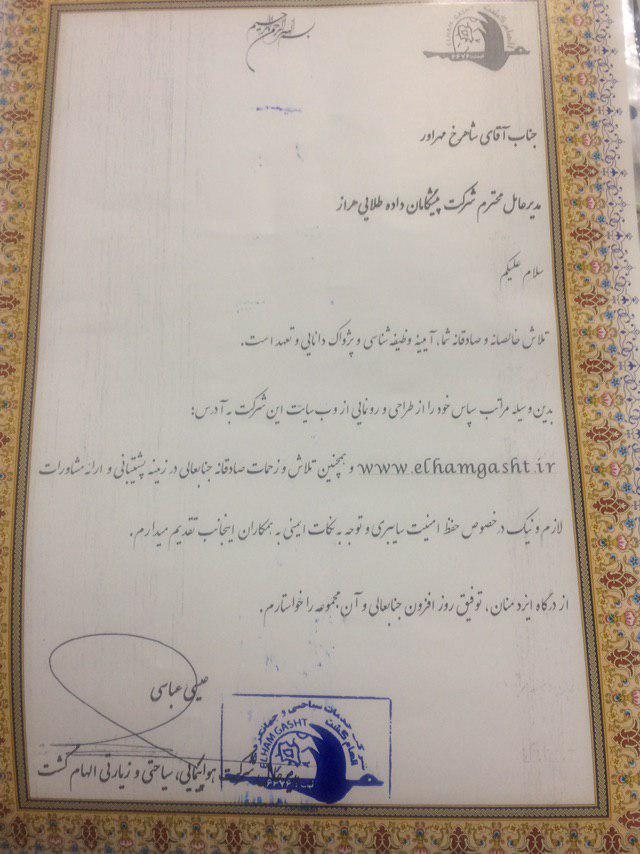 بسم الله الرحمن الرحیم
ELHAM GASHT
۶۲۷۶
جناب آقای شاهرخ مهرآور
مدیرعامل محترم شرکت پیشگامان داده طلایی هراز
سلام علیکم
تلاش خالصانه و صادقانه شما، آیینه وظیفه شناسی و پژواک دانایی و تعهد است.
بدین وسیله مراتب سپاس خود را از طراحی و رونمایی از وب سایت این شرکت به آدرس:
www.elhamgasht.ir و همچنین تلاش و زحمات صادقانه جنابعالی در زمینه پشتیبانی و ارائه مشاورات
لازم و نیک در خصوص حفظ امنیت سایبری و توجه به نکات ایمنی به همکاران اینجانب تقدیم میدارم.
از درگاه ایزد منان، توفیق روز افزون جنابعالی و آن مجموعه را خواستارم.
عیسی عباسی
شرکت هواپیمایی، سیاحتی و زیارتی الهام گشت
شرکت خدمات سیاحتی و جهانگردی
الهام گشت
ELHAM GASHT
۶۲۷۶